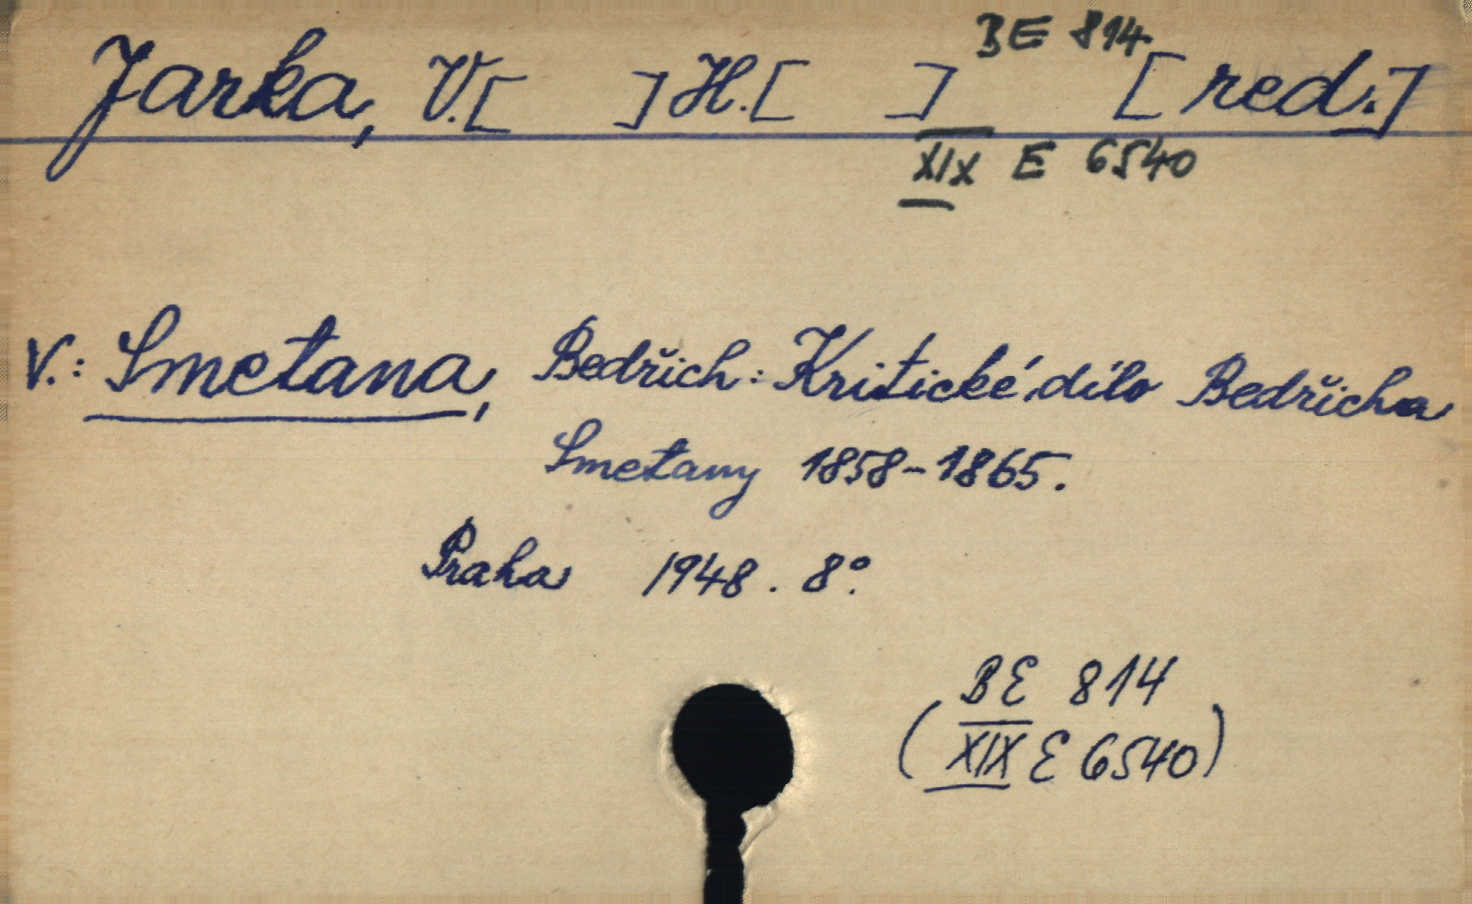 BE 814
Jarka, V.[ ] H.[ ] [red.]
XIX E 6540
V.: Smetana, Bedřich: Kritické dílo Bedřicha
Smetany 1858-1865.
Praha 1948. 8°.
BE 814
(XIX E 6540)